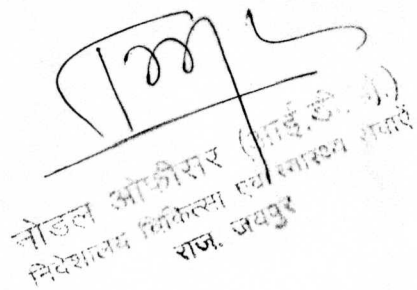 नोडल ओफीसर (आई.डी.
निदेशालय चिकित्सा एवं स्वास्थ्य सेवाएँ
राज. जयपुर